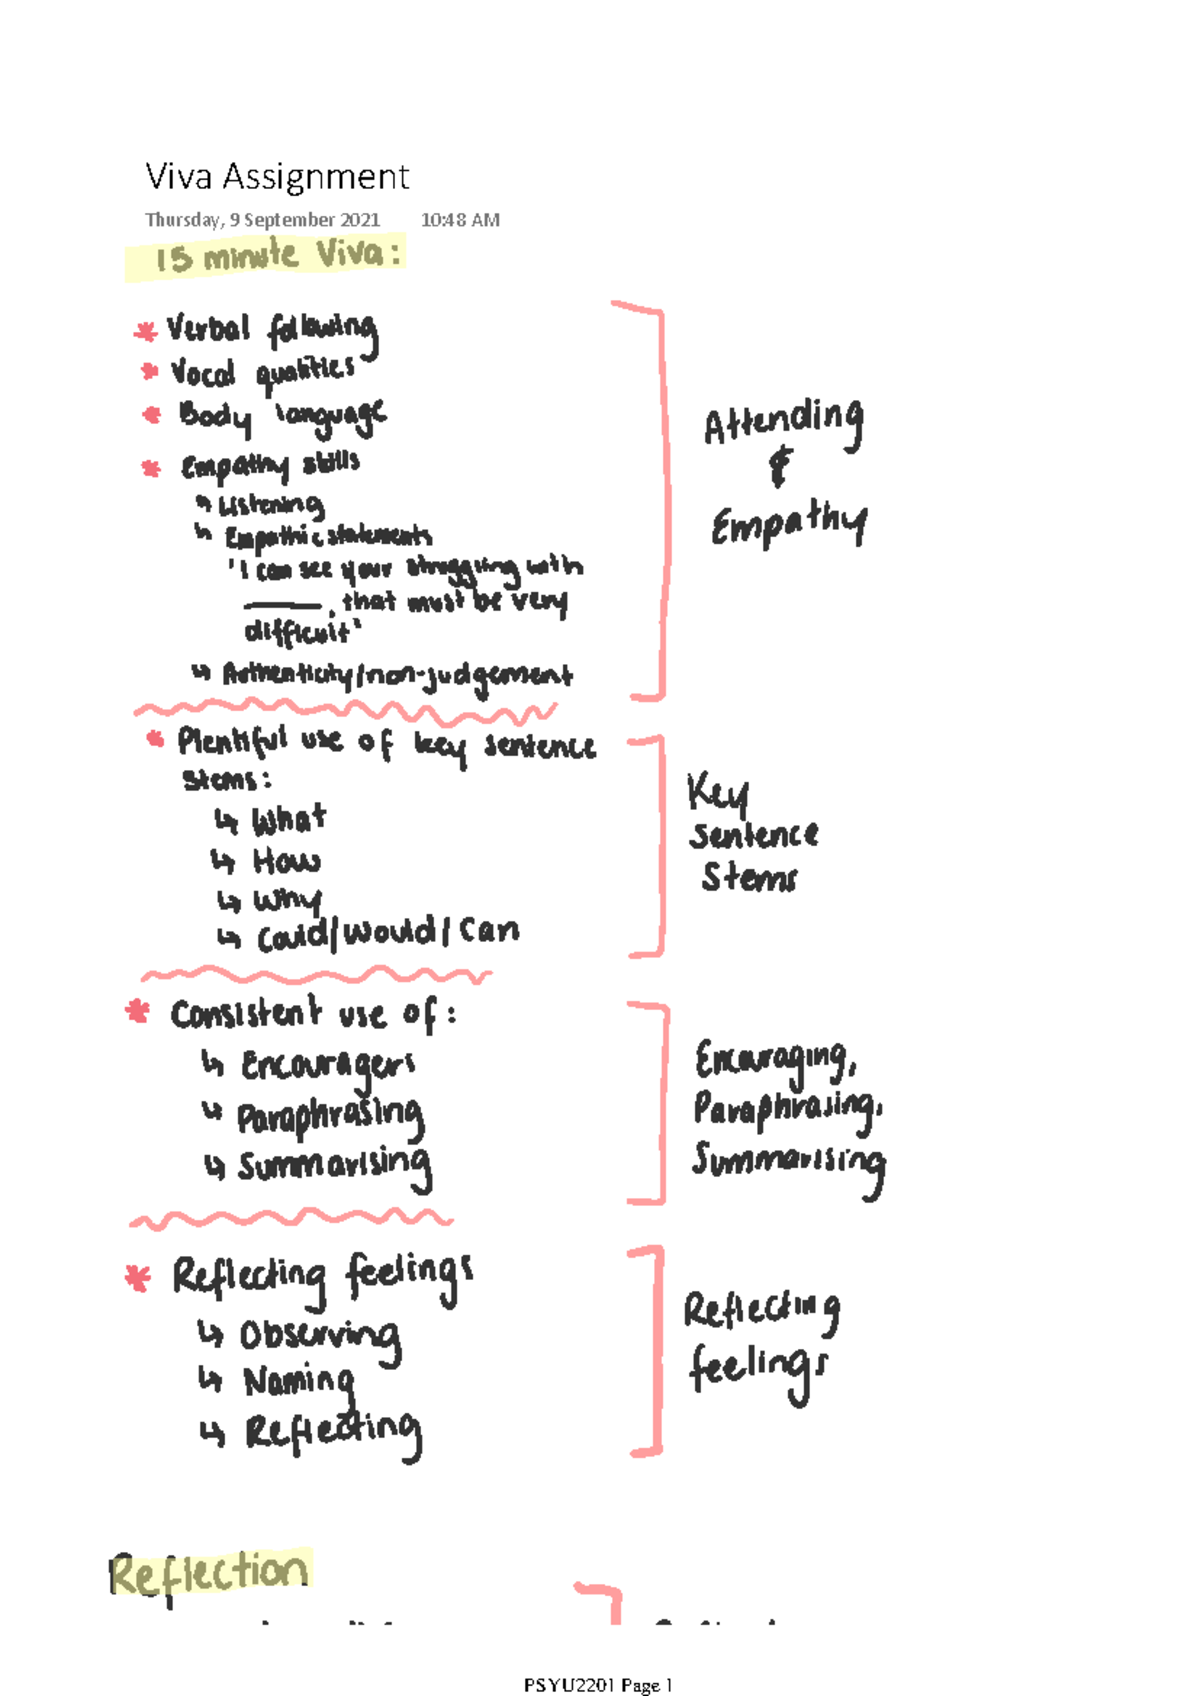 Viva Assignment
Thursday, 9 September 2021 10:48 AM
15 minute Viva:
* Verbal following
* Vocal qualities
* Body language
* Empathy skills
↳ Listening
↳ Empathic statements
'I can see your struggling with
____, that must be very
difficult'
↳ Authenticity/non-judgement
Attending
&
Empathy
* Plentiful use of key sentence
stems:
↳ What
↳ How
↳ Why
↳ Could/Would/Can
Key
Sentence
Stems
* Consistent use of:
↳ Encouragers
↳ Paraphrasing
↳ Summarising
Encouraging,
Paraphrasing,
Summarising
* Reflecting feelings
↳ Observing
↳ Naming
↳ Reflecting
Reflecting
feelings
Reflection
PSYU2201 Page 1